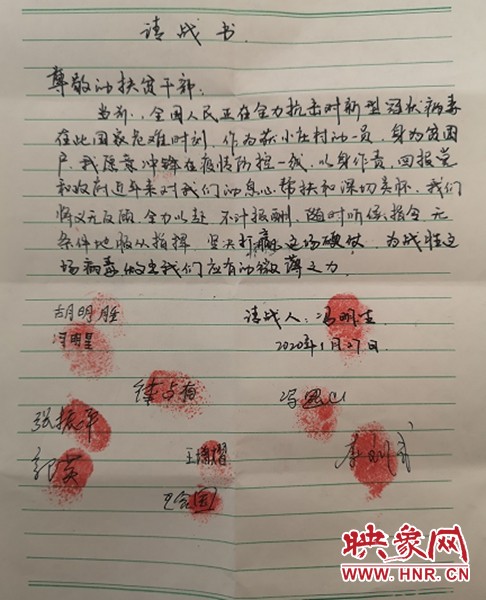 请战书
尊敬的扶贫干部:
当前,全国人民正在全力抗击对新型冠状病毒
在此国家危难时刻,作为荻小庄村的一员,身为贫困
户,我愿意冲锋在疫情防控一线,以身作责,回报党
和政府近年来对我们的悉心帮扶和深切关怀,我们
将义无反顾,全力以赴,不计报酬,随时听候指令,无
条件地服从指挥,坚决打赢这场硬仗,为战胜这
场病毒做出我们应有的微薄之力。
请战人:冯明生
2020年1月27日
胡明胜
冯明星
张振平
郭英
映象网
WWW.HNR.CN